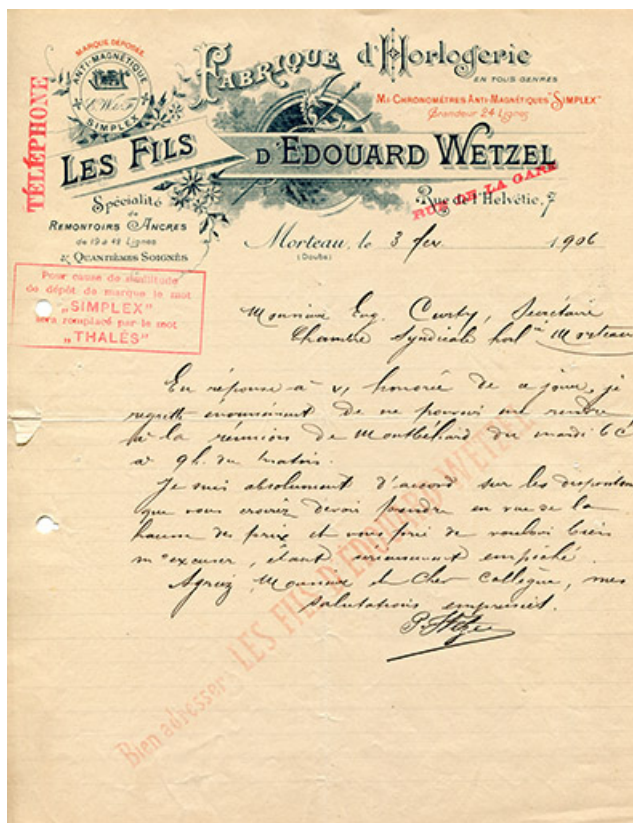 MARQUE DÉPOSÉE
ANTI-MAGNÉTIQUE
SIMPLEX
TÉLÉPHONE
FABRIQUE d'Horlogerie
EN TOUS GENRES
MI-CHRONOMÈTRES ANTI-MAGNÉTIQUES "SIMPLEX"
Grandeur 24 Lignes
LES FILS D'EDOUARD WETZEL
Spécialité
de
REMONTOIRS ANCRES
de 19 à 42 Lignes
& QUANTIÈMES SOIGNÉS
Rue de l'Helvétie, 7
RUE DE LA GARE
Morteau, le 3 fev 1906
(Doubs)
Pour cause de similitude
de dépôt de marque le mot
„SIMPLEX"
sera remplacé par le mot
„THALÈS"
Monsieur Eug. Curty, Secrétaire
Chambre Syndicale horl Morteau
En réponse à v, honorée de ce jour, je
regrette de ne pouvoir me rendre
à la réunion de Montbéliard du mardi 6 ct
à 9h. du matin.
Je suis absolument d'accord sur les dispositions
que vous croirez devoir prendre en vue de la
hausse des prix et vous prie de vouloir bien
m'excuser, étant empêché.
Agréez, Monsieur et Cher Collègue, mes
salutations empressées.
Bien adresser: LES FILS D'EDOUARD WETZEL